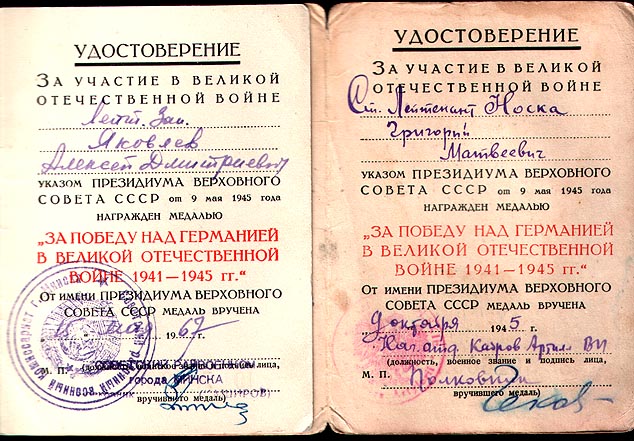 УДОСТОВЕРЕНИЕ
ЗА УЧАСТИЕ В ВЕЛИКОЙ
ОТЕЧЕСТВЕННОЙ ВОЙНЕ
Яковлев
Алексей Дмитриевич
УКАЗОМ ПРЕЗИДИУМА ВЕРХОВНОГО
СОВЕТА СССР от 9 мая 1945 года
НАГРАЖДЕН МЕДАЛЬЮ
„ЗА ПОБЕДУ НАД ГЕРМАНИЕЙ
В ВЕЛИКОЙ ОТЕЧЕСТВЕННОЙ
ВОЙНЕ 1941—1945 гг.“
От имени ПРЕЗИДИУМА ВЕРХОВНОГО
СОВЕТА СССР МЕДАЛЬ ВРУЧЕНА
мая 1967 г.
М. П. лица,
города МИНСКА
вручившего медаль)
УДОСТОВЕРЕНИЕ
ЗА УЧАСТИЕ В ВЕЛИКОЙ
ОТЕЧЕСТВЕННОЙ ВОЙНЕ
Ст. Лейтенант Носка
Григорий
Матвеевич
УКАЗОМ ПРЕЗИДИУМА ВЕРХОВНОГО
СОВЕТА СССР от 9 мая 1945 года
НАГРАЖДЕН МЕДАЛЬЮ
„ЗА ПОБЕДУ НАД ГЕРМАНИЕЙ
В ВЕЛИКОЙ ОТЕЧЕСТВЕННОЙ
ВОЙНЕ 1941—1945 гг.“
От имени ПРЕЗИДИУМА ВЕРХОВНОГО
СОВЕТА СССР МЕДАЛЬ ВРУЧЕНА
9 октября 1945 г.
Нач. отд. Кадров Артил
(должность, военное звание и подпись лица,
М. П. Полковник
вручившего медаль)